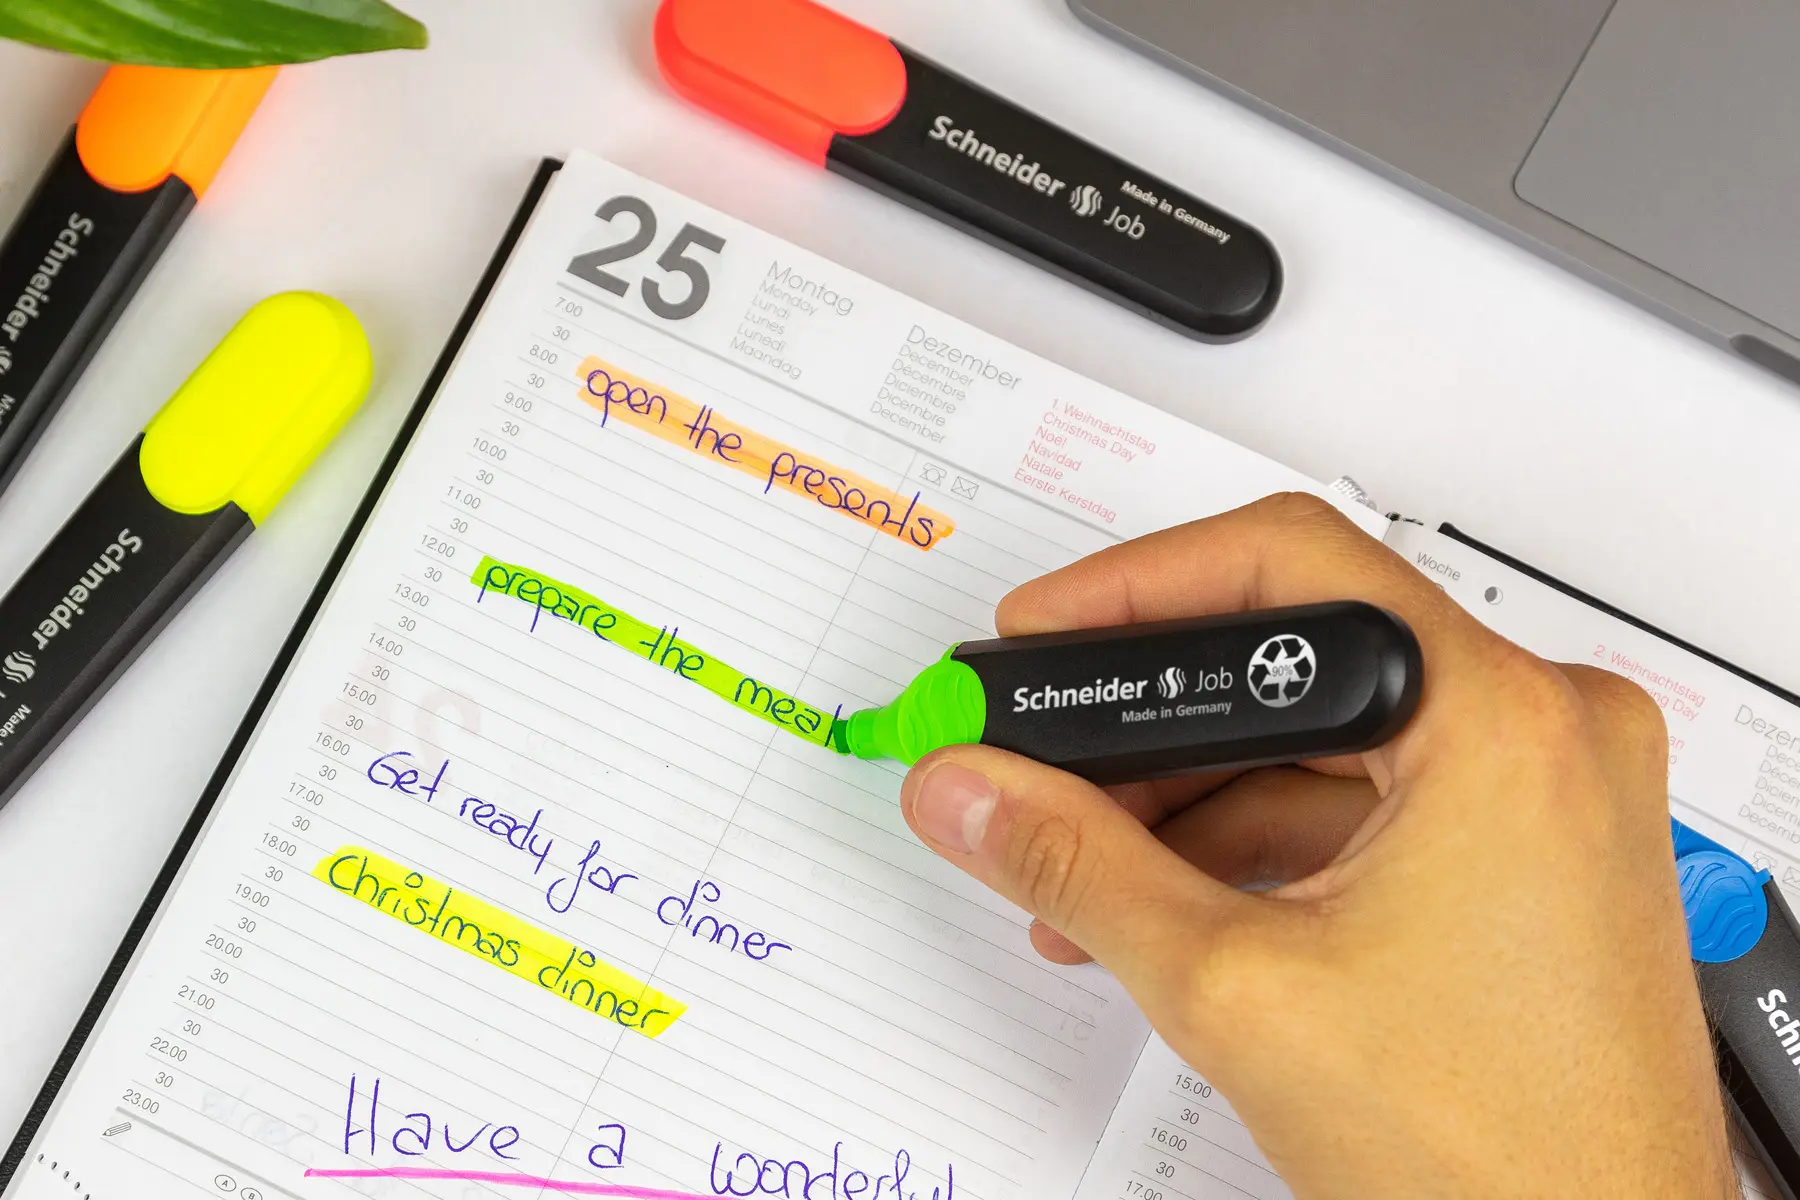 Schneider Job
Made in Germany
Schneider
Made
Schneider
25
Montag
Monday
Lundi
Lunes
Lunedì
Maandag
Dezember
December
Décembre
Diciembre
Dicembre
December
1. Weihnachtstag
Christmas Day
Noël
Navidad
Natale
Eerste Kerstdag
7.00
30
8.00 open the presents
30
9.00
30
10.00
30
11.00
30
12.00 prepare the meal
30
13.00
30
14.00
30
15.00
30
16.00 Get ready for dinner
30
17.00
30
18.00 Christmas dinner
30
19.00
30
20.00
30
21.00
30
22.00
30
23.00
Have a wonderful
A B
Schneider Job 90%
Made in Germany
Woche
2. Weihnachtstag
15.00
30
16.00
30
17.00